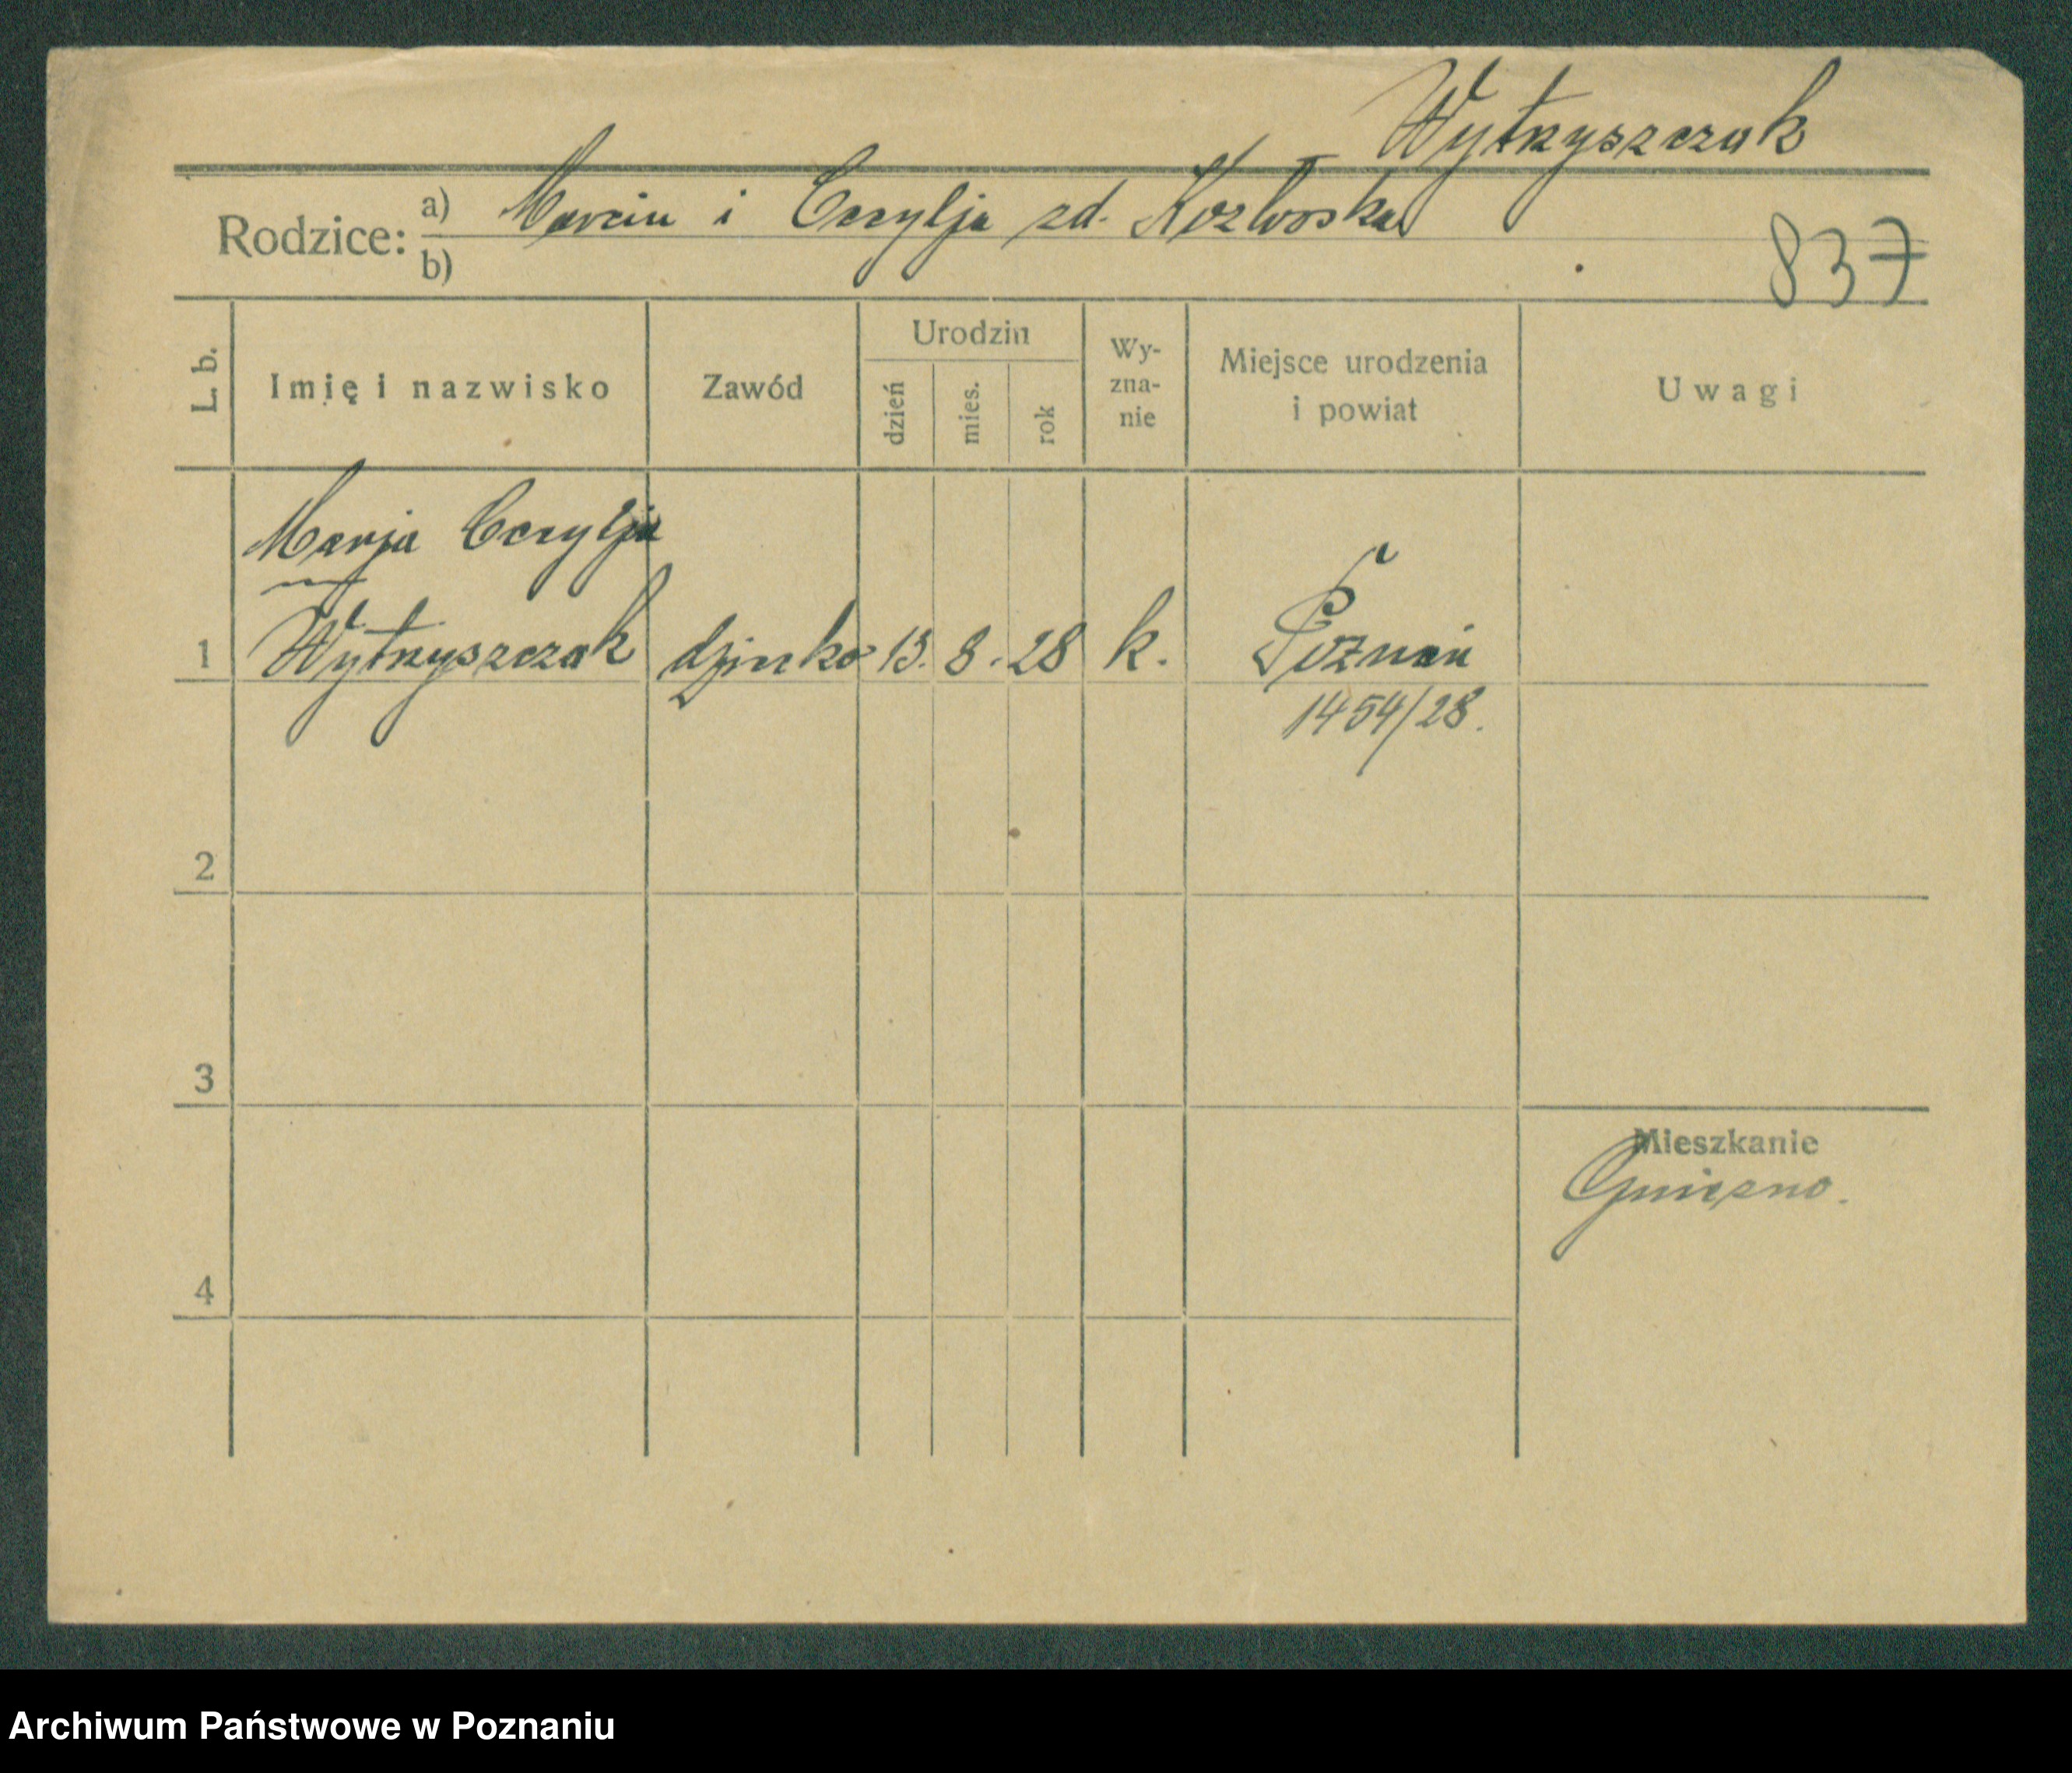 Wytryszczak
Rodzice: a) Marcin i Cecylja zd. Kozłowska
b)
837
L. b.
Imię i nazwisko
Zawód
Urodzin
dzień
mies.
rok
Wy-
zna-
nie
Miejsce urodzenia
i powiat
Uwagi
Marja Cecylja
1 Wytryszczak 13. 8. 28 k. Poznań
1454/28.
2
3
Mieszkanie
Gniezno.
4
Archiwum Państwowe w Poznaniu